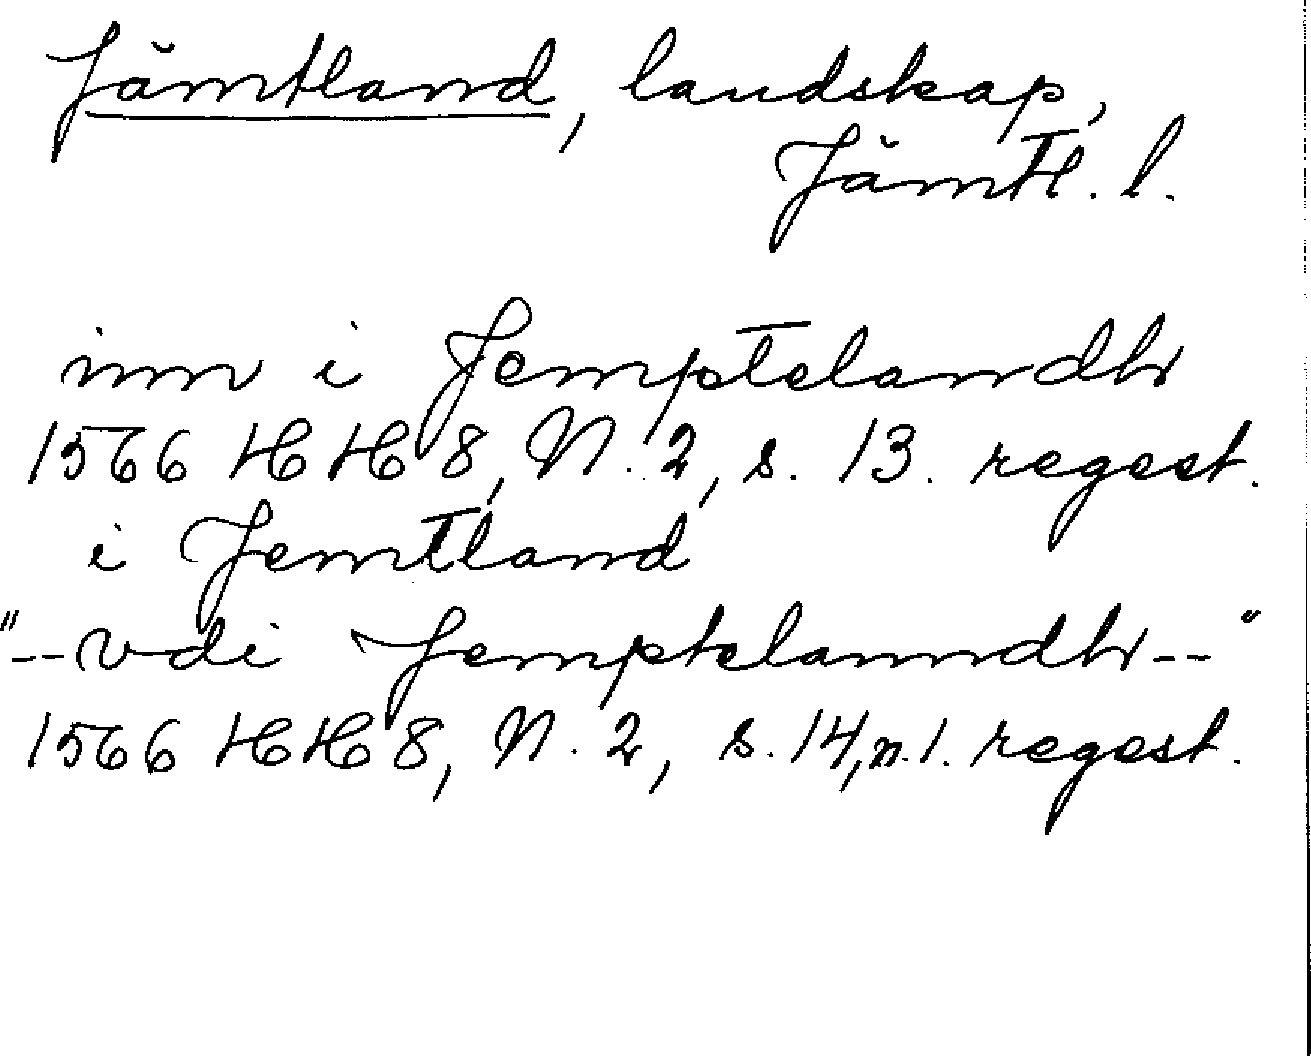 Jämtland, landskap,
Jämtl. l.
inn i Jemptelandh
1566 HH 8, N. 2, s. 13. regest.
i Jemtland
"--vdi Jemptelanndh--"
1566 HH 8, N. 2, s. 14, n. 1. regest.